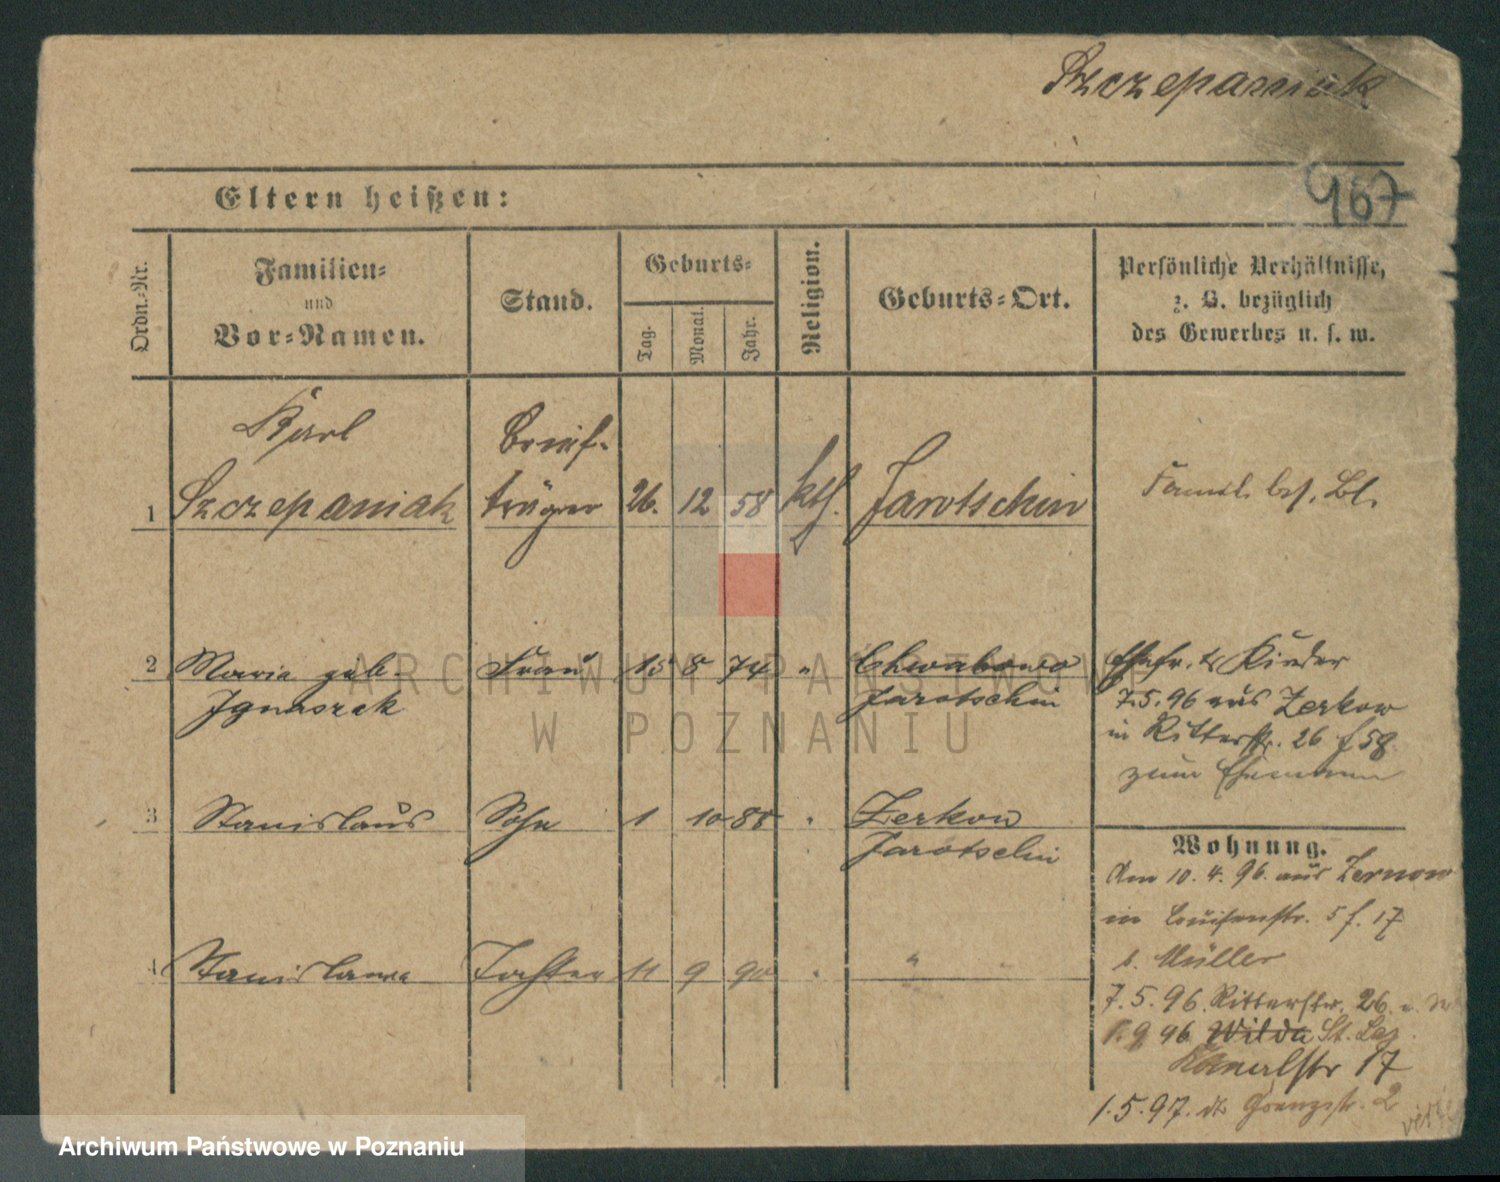 Szczepaniak
967
Eltern heißen:
Ordn.-Nr.
Familien-
und
Vor-Namen.
Stand.
Geburts-
Tag.
Monat.
Jahr.
Religion.
Geburts-Ort.
Persönliche Verhältnisse,
z. B. bezüglich
des Gewerbes u. s. w.
Karl Brief-
1 Szczepaniak träger 26. 12 58 kth. Jarotschin
2 Maria geb. Frau 15 8 74 " Chwabowo
Ignaszak Jarotschin
Ehefr. & Kinder
7.5.96 aus Zerkow
in Ritterstr. 26 f 58
zum Ehemann
3 Stanislaus Sohn 1 10 88 " Zerkow
Jarotschin
4 Stanislawa Tochter 11 9 90 " "
Wohnung.
Am 10. 4. 96. aus
in Louisenstr. 5 f. 17
b. Müller
7. 5. 96. Ritterstr. 26
1. 9 96 Wilda St. Laz.
Kanalstr 17
1. 5. 97. Grenzstr. 2
ARCHIWUM PAŃSTWOWE
W POZNANIU
Archiwum Państwowe w Poznaniu